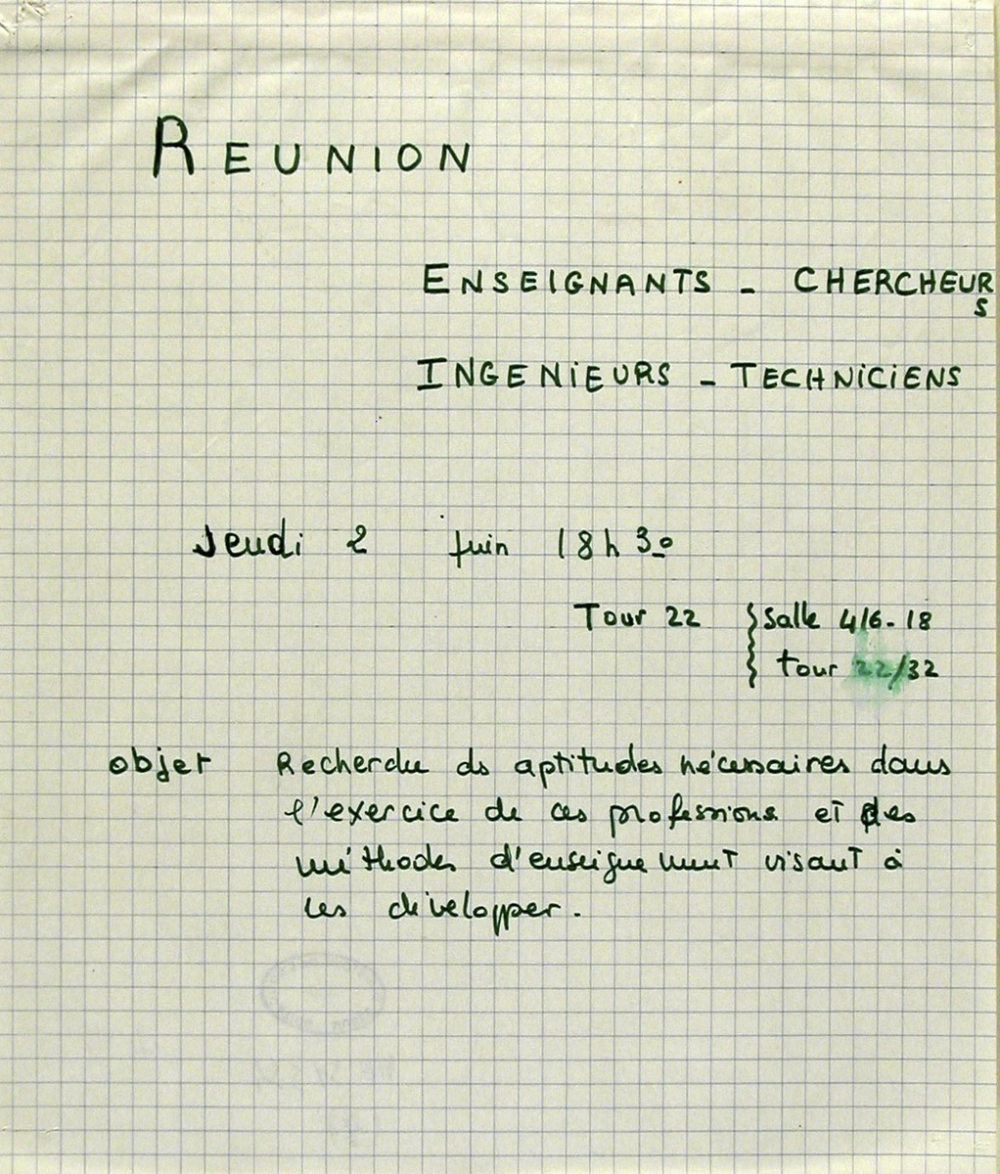 REUNION
ENSEIGNANTS - CHERCHEURS
INGENIEURS - TECHNICIENS
Jeudi 2 juin 18h30
Tour 22 { Salle 416-18
tour 22/32
objet Recherche des aptitudes nécessaires dans
l'exercice de ces professions et des
méthodes d'enseignement visant à
les développer.